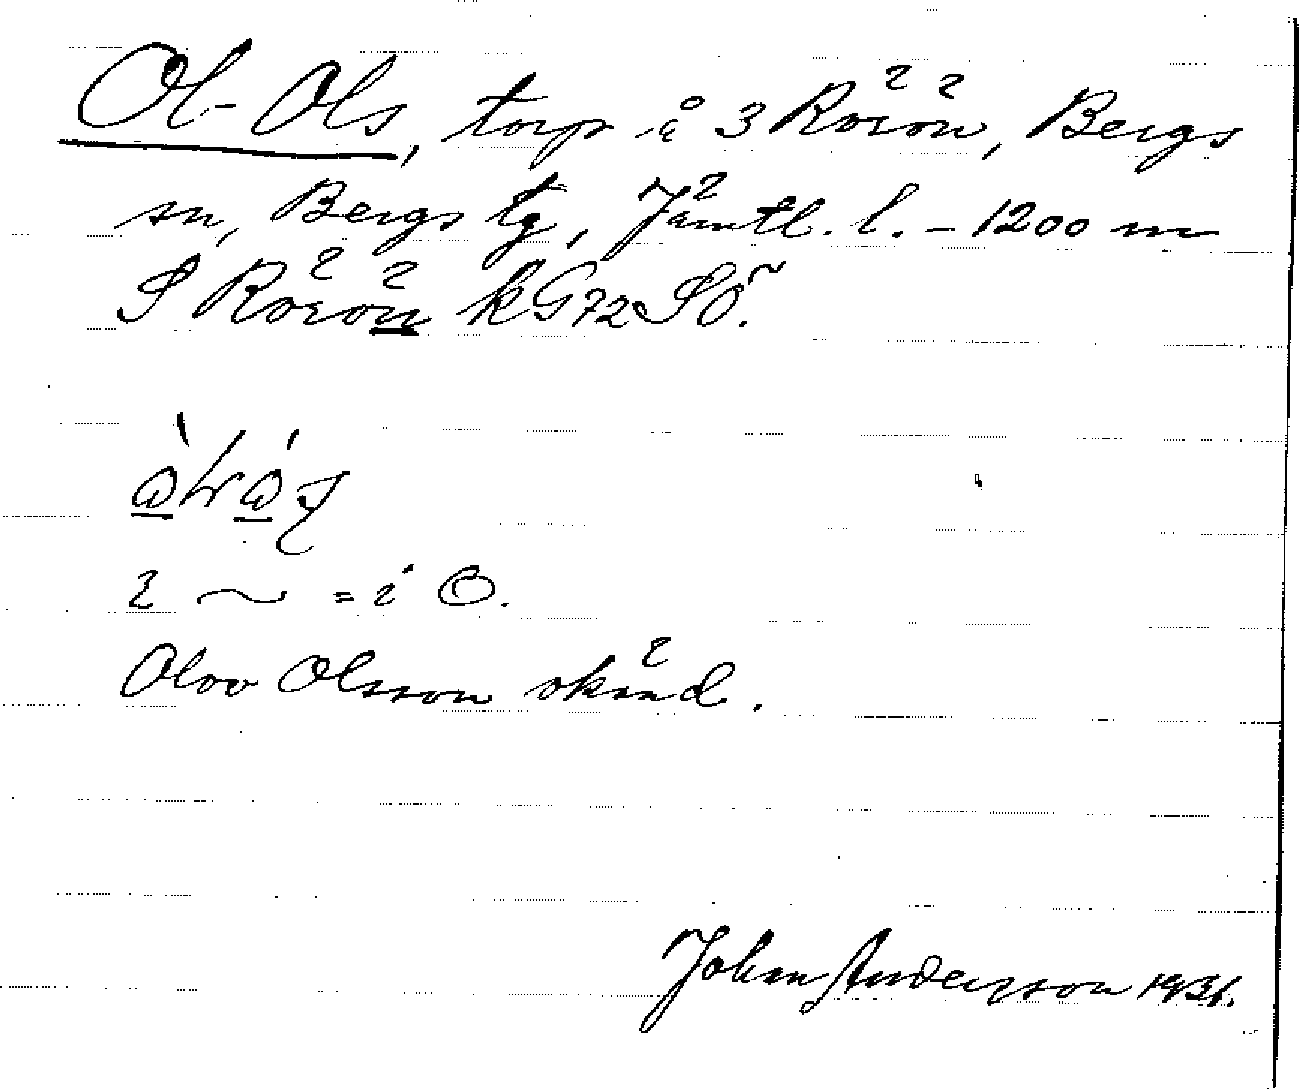 Ol-Ols, torp i 3 Rörön, Bergs
sn, Bergs tg, Jämtl. l. – 1200 m
S Rörön k G72 SÖ.
2 ~ = i O.
Olov Olsson okänd.
Johan Andersson 1931.